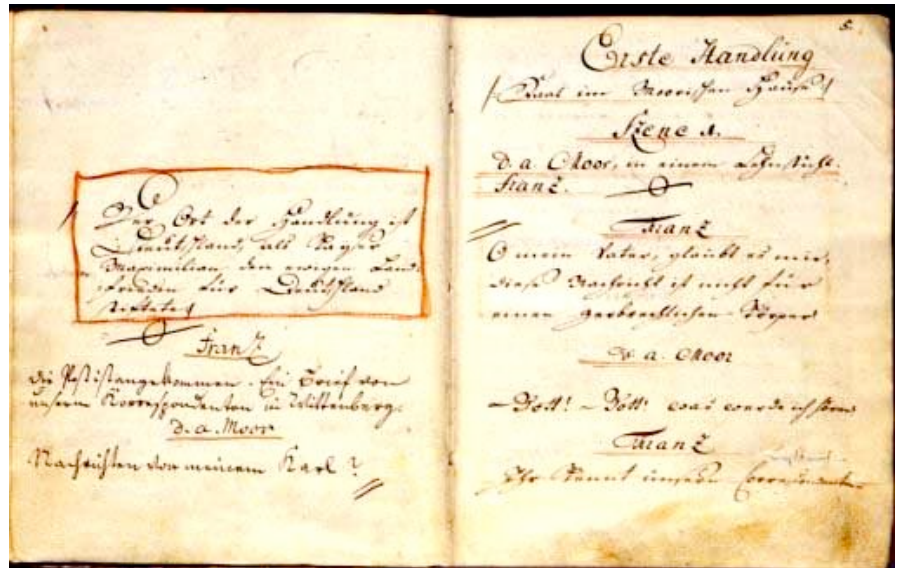 Der Ort der Handlung ist
Deutschland, als Kayser
Maximilian, den ewigen Land-
frieden für Deutschland
stiftete
Franz
die Post ist angekommen. Ein Brief von
unserm Korrespondenten in Wittenberg.
D. a. Moor
Nachrichten von meinem Karl?
5.
Erste Handlung
/Saal im Moorischen Hause/
Szene 1.
D. a. Moor, in einem Lehnstuhl.
Franz.
Franz
O mein Vater, glaubt es mir,
diese Nachricht ist nicht für
einen zerbrechlichen Körper
D. a. Moor
– Gott! – Gott! was werde ich hören
Franz
Ihr kennt unsern Correspondenten